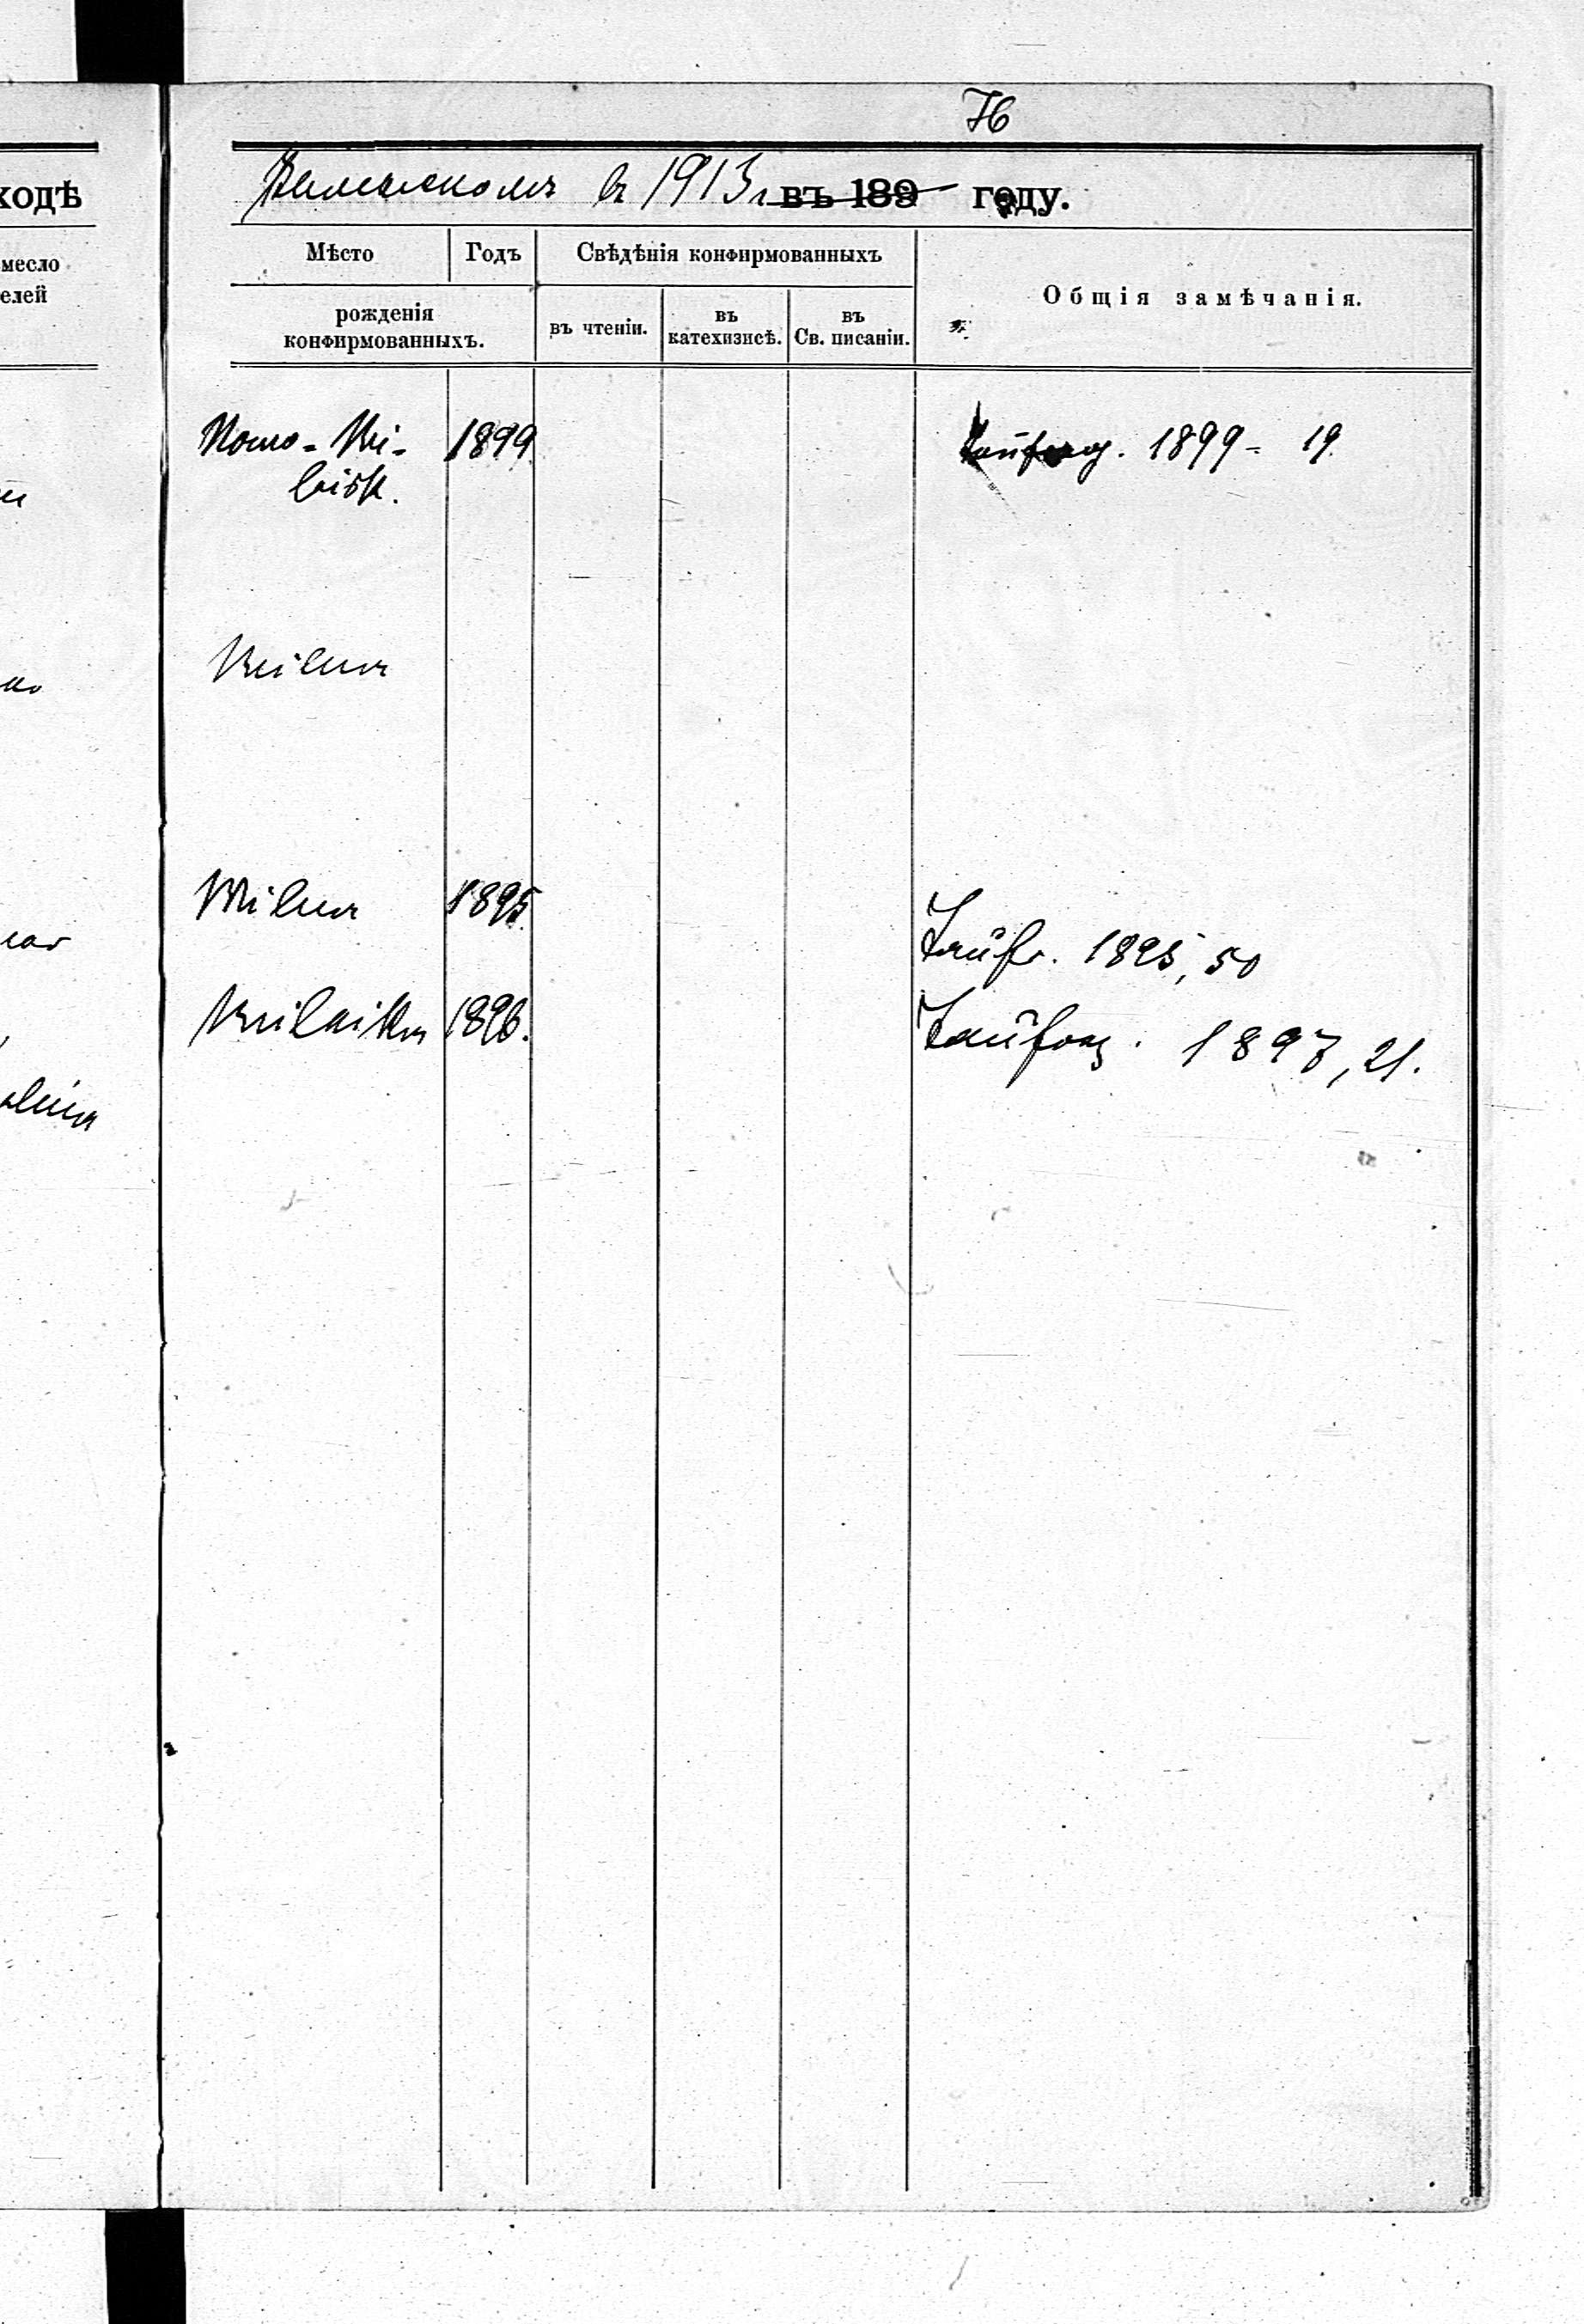 76
ходѣ
Виленскомъ въ 1913 г. въ 189 году.
месло
елей
Мѣсто
Годъ
рожденія
конфирмованныхъ.
Свѣдѣнія конфирмованныхъ
въ чтеніи.
въ
катехизисѣ.
въ
Св. писаніи.
Общія замѣчанія.
Nowo-Wi- 1899 1899 - 19
leisk.
Wilna
Wilna 1895
Taufr. 1895, 50
Wileika 1896.
Taufreg. 1897, 21.